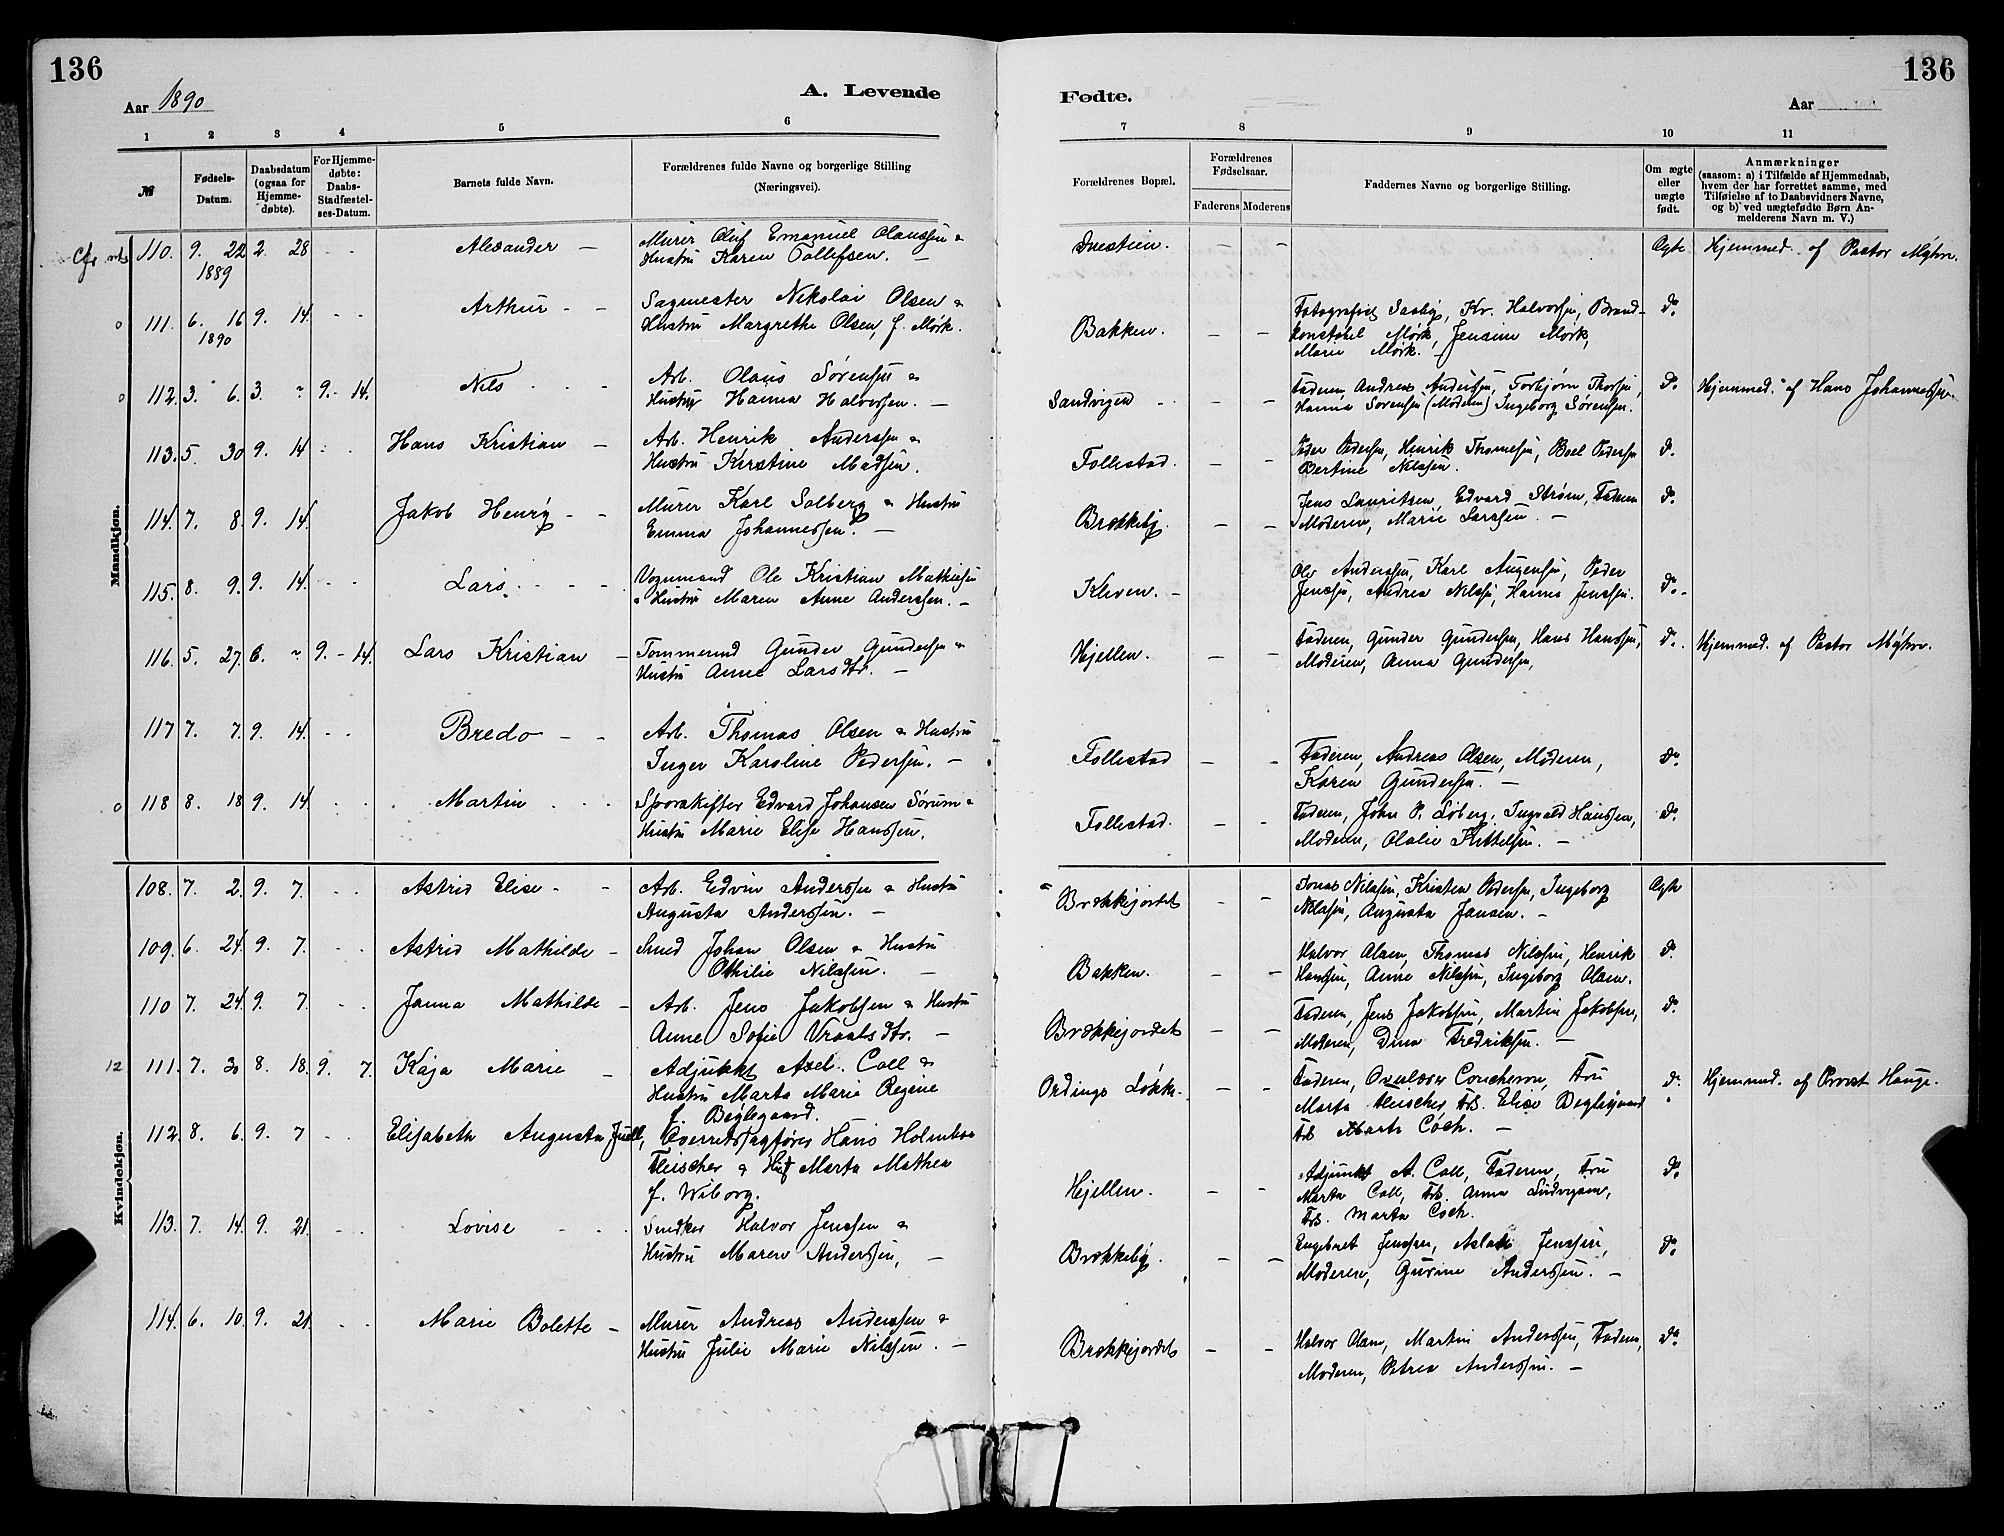 136
136
Aar 1890
A. Levende
Fødte.
Aar
1 2 3 4 5 6 7 8 9 10 11
№
Fødsels-Datum.
Daabsdatum (ogsaa for Hjemme-døbte).
For Hjemme-døbte: Daabs-Stadfæstel-ses-Datum.
Barnets fulde Navn.
Forældrenes fulde Navne og borgerlige Stilling (Næringsvei).
Forældrenes Bopæl.
Forældrenes Fødselsaar.
Faderens Moderens
Faddernes Navne og borgerlige Stilling.
Om ægte eller uægte født.
Anmærkninger (saasom: a) i Tilfælde af Hjemmedaab, hvem der har forrettet samme, med Tilføielse af to Daabsvidners Navne, og b) ved uægtefødte Børn Anmelderens Navn m. V.)
Mandkjøn.
110. 9. 22 2. 28 - - Alexander - Murer Oluf Emanuel Olaussen & - - Ægte Hjemmed. af Pastor
1889 Hustru Karen Tollefsen. -
o 111. 6. 16 9. 14. - - Arthur - - Sagmester Nikolai Olsen & Bakken. - - Fotografist Saaby, Kr. Halvorsen, Brand- do
1890 Hustru Margrethe Olsen, f. Mørk. konstabel Mørk, Jensine Mørk,
Marie Mørk.
o 112. 3. 6. 3. " 9. - 14. Nils - - - Arb. Olaus Sørensen & Sandvigen - - - Faderen, Andreas Andersen, Torbjørn Thorsen, do Hjemmed. af Hans Johannessen
Hustru Hanna Halvorsen. - Hanna Sørensen (Moderen) Ingeborg Sørensen.
113. 5. 30 9. 14 - - Hans Kristian - Arb. Henrik Anderssen & Follestad. - - Peder Pedersen, Henrik Thomesen, Boel Pedersen do
Hustru Kirstine Madsen. Bertine Nilssen.
114. 7. 8. 9. 14. Jakob Henry - - Murer Karl Solberg & Hustru Brekkeby. - - Jens Lauritsen, Edvard Strøm, Faderen do
Emma Johannessen. - Moderen, Marie Larssen. -
115. 8. 9. 9. 14. - - Lars - - - Vognmand Ole Kristian Mathiesen Kleven. - Ole Anderssen, Karl Augensen, Peder do -
& Hustru Maren Anne Anderssen. - Jenssen, Andrea Nilssen, Hanna Jenssen.
116. 5. 27. 6. " 9. - 14. Lars Kristian - Tømmermd Gunder Gundersen & Hjellen. - - Faderen, Gunder Gundersen, Hans Hanssen, do. Hjemmed. af Pastor
Hustru Anne Larsdtr. - Moderen, Anna Gundersen,
117 7. 7. 9. 14. - - Bredo - - Arb. Thomas Olsen & Hustru Follestad - - Faderen, Andreas Olsen, Moderen, do.
Inger Karoline Pedersen. - Karen Gundersen. -
o 118 8. 18 9. 14 - - Martin - - - Sporskifter Edvard Johansen Sørum & Follestad. - - Faderen, John P. Løberg, Ingvald Hanssen, do.
Hustru Marie Elise Hanssen. Moderen, Olalie Kittelsen. -
Kvindekjøn.
108. 7. 2. 9. 7. - - Astrid Elise - - Arb. Edvin Anderssen & Hustru Brekkejordet - - Jonas Nilssen, Kristen Pedersen, Ingeborg Ægte
Augusta Anderssen. - Nilssen, Augusta Jansen. -
109. 6. 24. 9. 7. - - Astrid Mathilde - Smed Johan Olsen & Hustru Bakken. - - Halvor Olsen, Thomas Nilssen, Henrik do.
Othilie Nilssen. - Hanssen, Anne Nilssen, Ingeborg Olsen.
110 7. 24. 9. 7. - - Janna Mathilde - Arb. Jens Jakobsen & Hustru Brekkejordet - - Faderen, Jens Jakobsen, Martin Jakobsen, do.
Anne Sofie Vraalsdtr. - Moderen, Dina Fredriksen. -
12 111. 7. 30 8. 18. 9. 7. Kaja Marie - Adjunkt Axel Coll & Ordings Løkke. - - Faderen, Overlærer Coucheron, Fru do. Hjemmed. af Provst Hauge.
Hustru Marta Marie Regine Marta Fleischer, Frk. Elise Beglegaard
f. Beglegaard. Frk Marta Coch. -
112. 8. 6. 9. 7 - - Elisabeth Augusta Juell, Overretssagfører Hans Holmboe Hjellen. - - Adjunkt A. Coll, Faderen, Fru do.
Fleischer & Hust Marta Mathea Marta Coll, Frk. Anna Ludvigsen,
f. Wiborg. Frk. Marta Coch.
113. 7. 14. 9. 21. - - Lovise - - Snedker Halvor Jenssen & Brekkeby. - - Engebret Jenssen, Aslak Jenssen, do.
Hustru Maren Anderssen, - Moderen, Gurine Anderssen. -
114. 6. 10. 9. 21. - - Marie Bolette - Murer Andreas Anderssen & Brekkejordet - - Halvor Olsen, Martin Anderssen, Faderen, do.
Hustru Julie Marie Nilssen. - Moderen, Petrea Anderssen. -